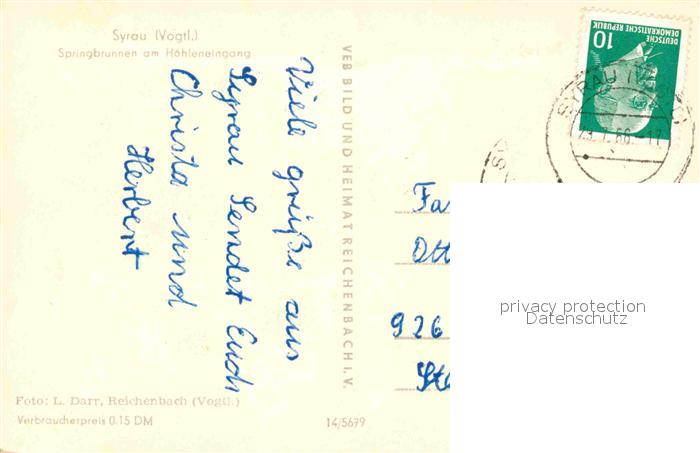 Syrau (Vogtl.)
Springbrunnen am Höhleneingang
Viele grüße aus
Syrau Sendet Euch
Christa und
Herbert
Foto: L. Darr, Reichenbach (Vogtl.)
Verbraucherpreis 0.15 DM
VEB BILD UND HEIMAT REICHENBACH I. V.
14/5679
DEUTSCHE
DEMOKRATISCHE REPUBLIK
10
SYRAU
Fa
Ott
926
privacy protection
Datenschutz